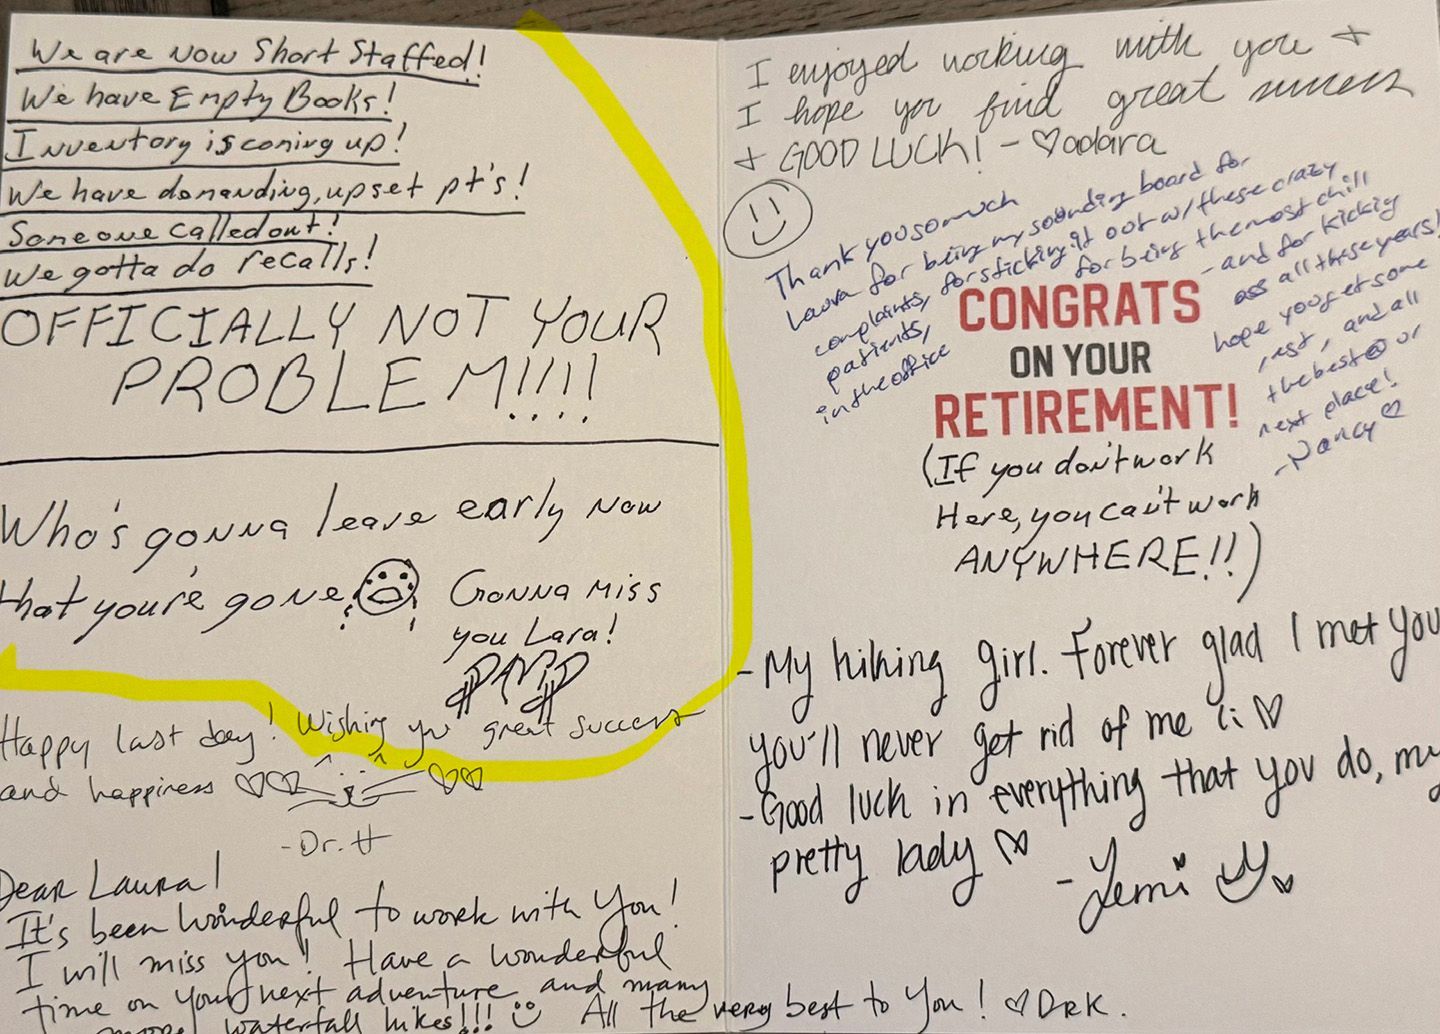 We are now Short Staffed!
We have Empty Books!
Inventory is coming up!
We have demanding, upset pt's!
Someone called out!
We gotta do recalls!
OFFICIALLY NOT YOUR
PROBLEM!!!!
Who's gonna leave early now
that you're gone
Gonna miss
you Lara!
Happy last day! Wishing you great success
and happiness
-Dr. H
Dear Laura!
It's been wonderful to work with you!
I will miss you! Have a wonderful
time on your next adventure and many
more waterfall hikes!!! All the very best to you! DRK.
I enjoyed working with you +
I hope you find great success
+ GOOD LUCK! - adara
Thank you so much
Laura for being my sounding board for
complaints, for sticking it out w/ these crazy
patients, for being the most chill
in the office - and for kicking
ass all these years!
hope you get some
rest, and all
the best @ ur
next place!
-Nancy
CONGRATS
ON YOUR
RETIREMENT!
(If you don't work
Here, you can't work
ANYWHERE!!)
-My hiking girl. Forever glad I met you
you'll never get rid of me
-Good luck in everything that you do, my
pretty lady